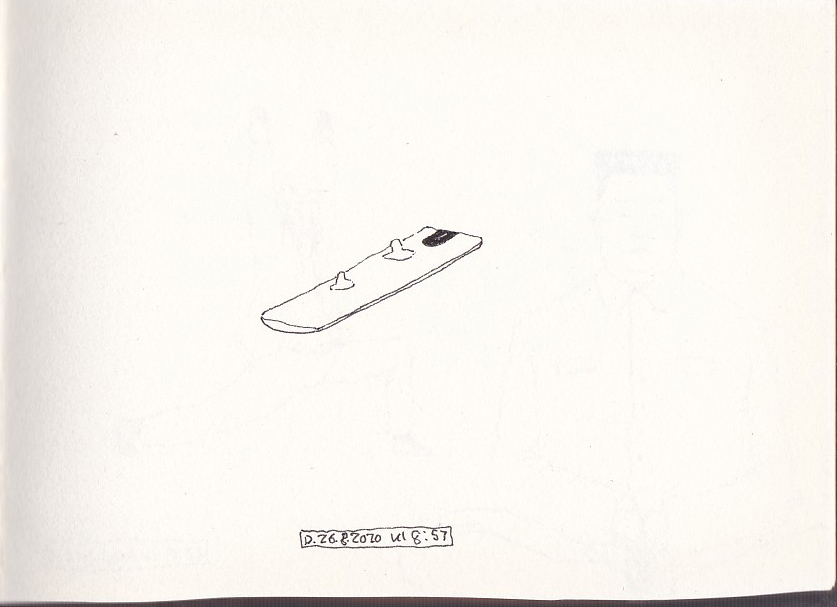 D. 26.8.2020 kl 8:57